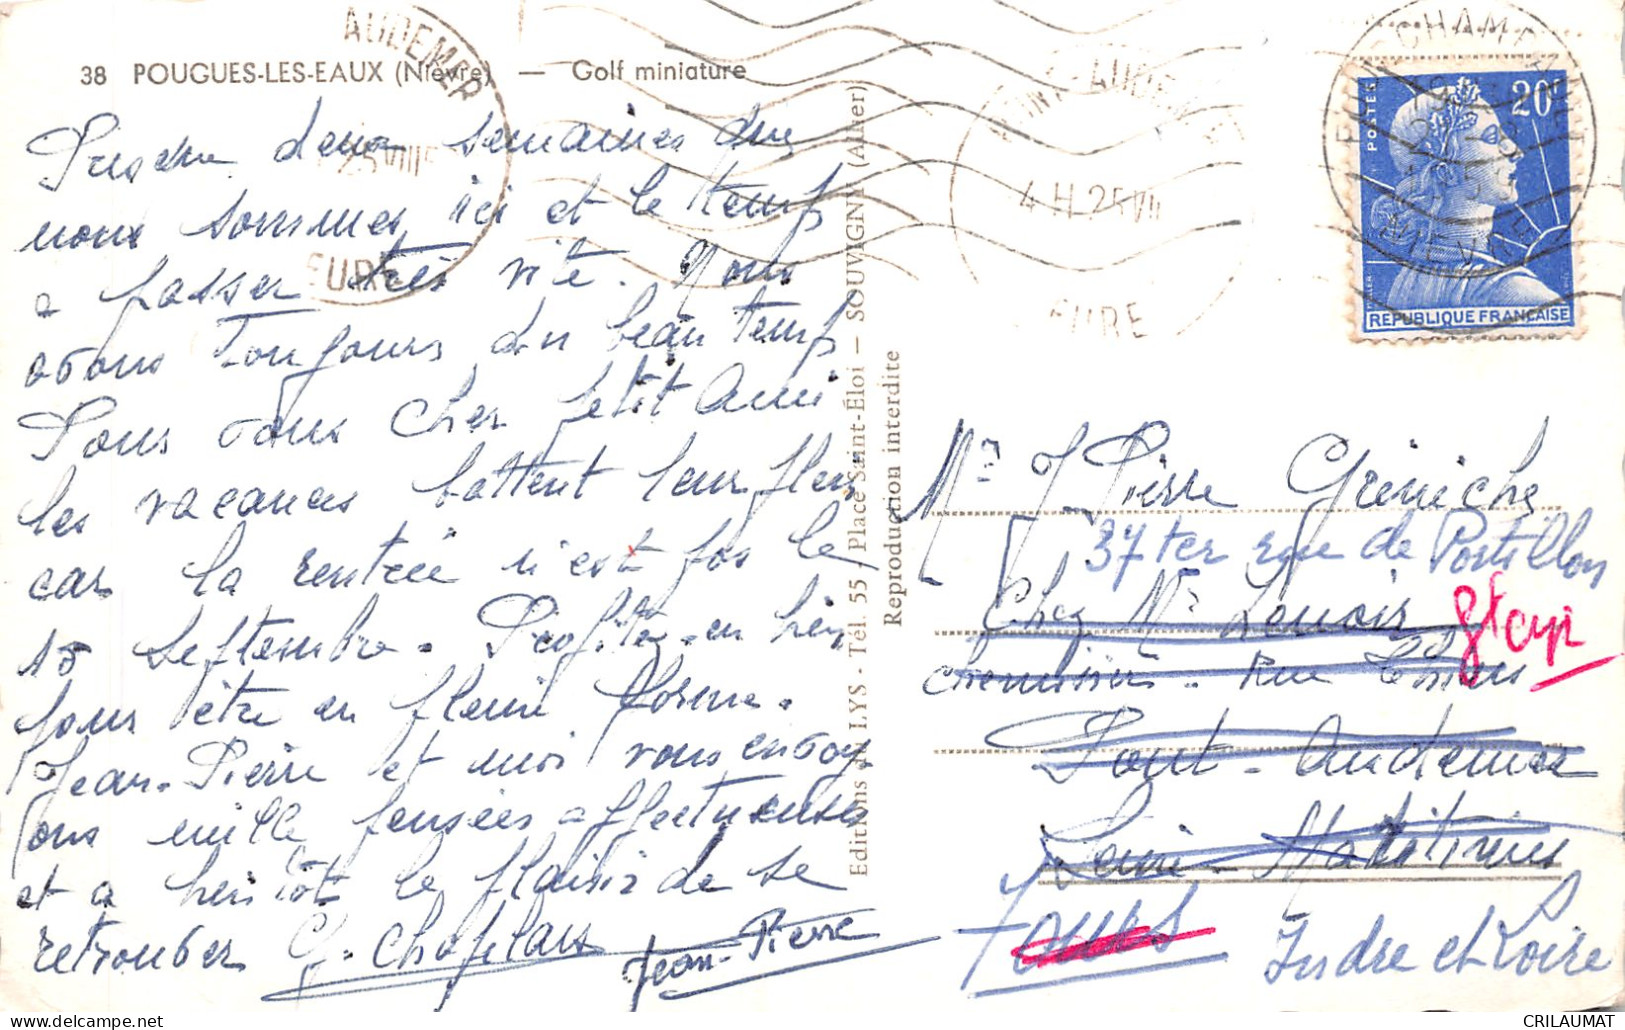 38 POUGUES-LES-EAUX (Nièvre) — Golf miniature
Presque deux semaines que
nous sommes ici et le temps
a passer très vite. Nous
avons toujours du beau temps
Pour vous cher petit ami
les vacances battent leur plein
car la rentrée n'est pas le
15 septembre. Profitez-en bien
pour être en pleine forme.
Jean-Pierre et moi vous envoy-
ons mille pensées affectueuses
et a bientôt le plaisir de se
retrouver G. Chapelais
Jean-Pierre
Editions du LYS - Tél. 55 - Place Saint-Éloi — SOUVIGNY (Allier)
Reproduction interdite
AUDEMER
25 VIII
EURE
PONT-AUDEMER
4 H 25 VIII
EURE
POUGUES
NIEVRE
POSTES
20F
REPUBLIQUE FRANÇAISE
Mr J. Pierre Grêniche
37 ter rue de Portillon
Chez Mr Lenoir
St Cyr
chemisier. Rue Thiers
Pont-Audemer
Seine-Maritimes
Tours Indre et Loire
CRILAUMAT